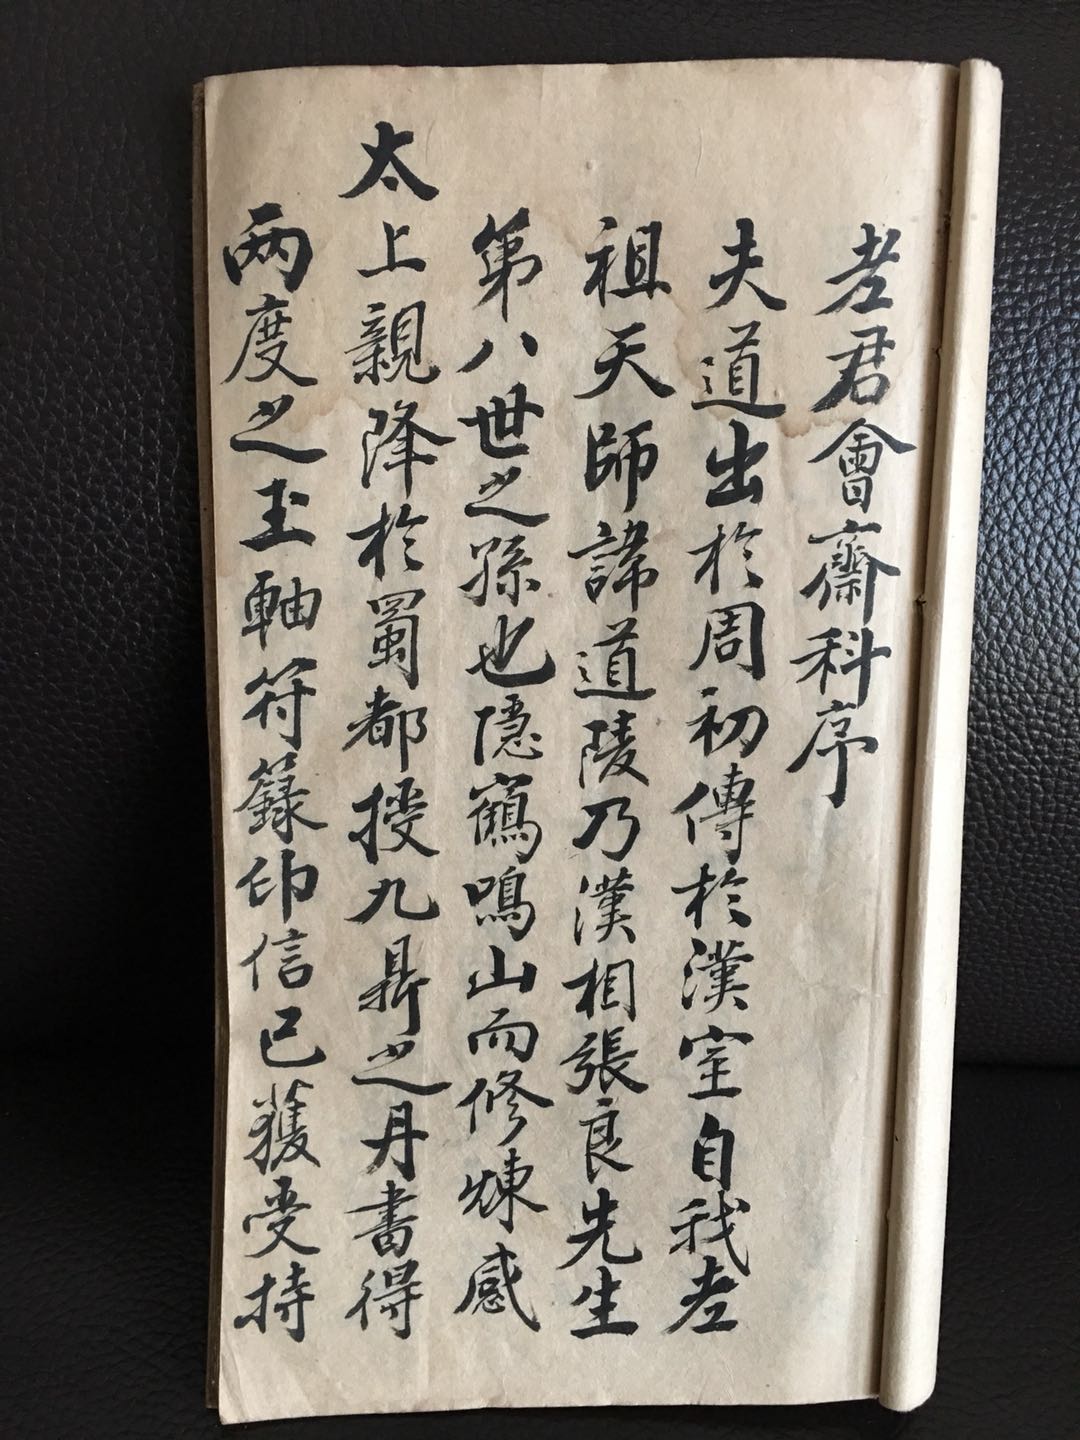 老君會齋科序
夫道出於周初傳於漢室自我老
祖天師諱道陵乃漢相張良先生
第八世之孫也隱鶴鳴山而修煉感
太上親降於蜀都授九鼎之丹書得
兩度之玉軸符籙印信已獲受持